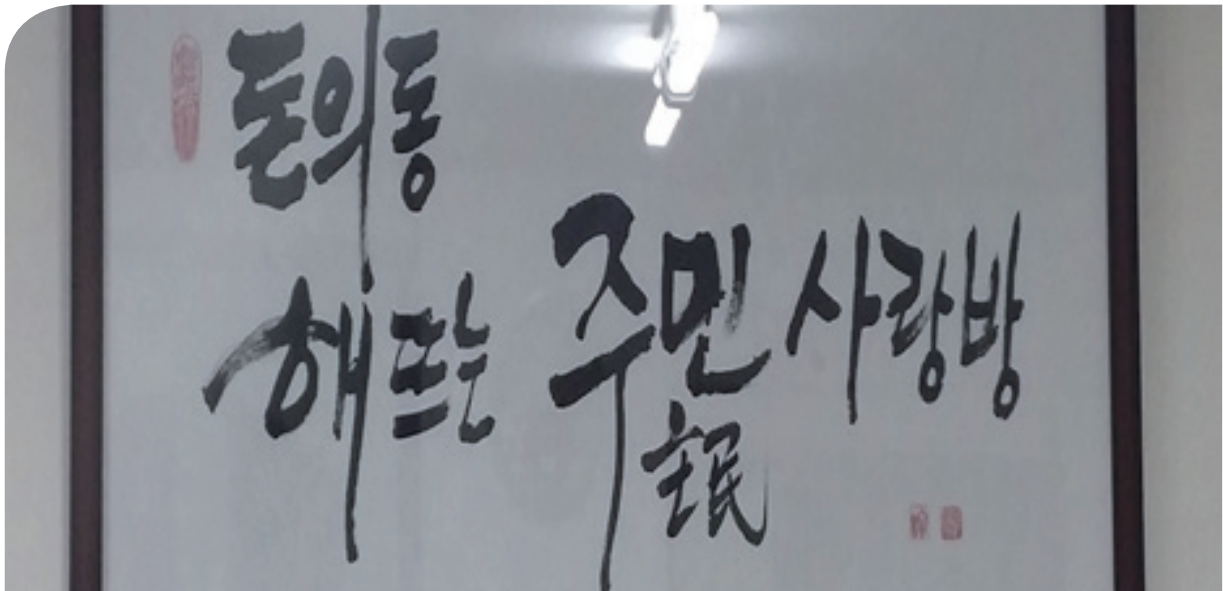 돈의동
해뜨는 주민 사랑방
主民